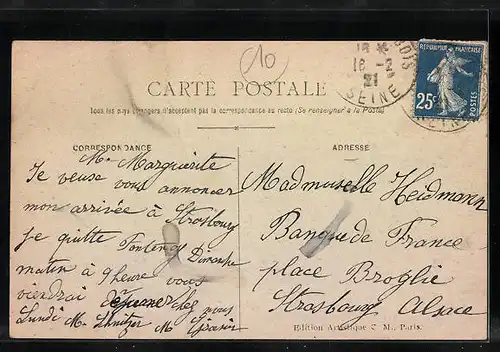 10
16 -2
21
SEINE
REPUBLIQUE FRANÇAISE
25c
POSTES
CARTE POSTALE
Tous les pays étrangers n'acceptent pas la correspondance au recto (Se renseigner à la Poste)
CORRESPONDANCE
ADRESSE
M. Marguerite
Je veuse vous annoncer
mon arrivée à Strasbourg
je quitte Fontenay Dimanche
matin à 9 heure vous
viendrai déjeuner chez vous
Lundi M. M.
Madmuselle Heidmann
Banque de France
place Broglie
Strasbourg Alsace
Edition Artistique C. M., Paris.